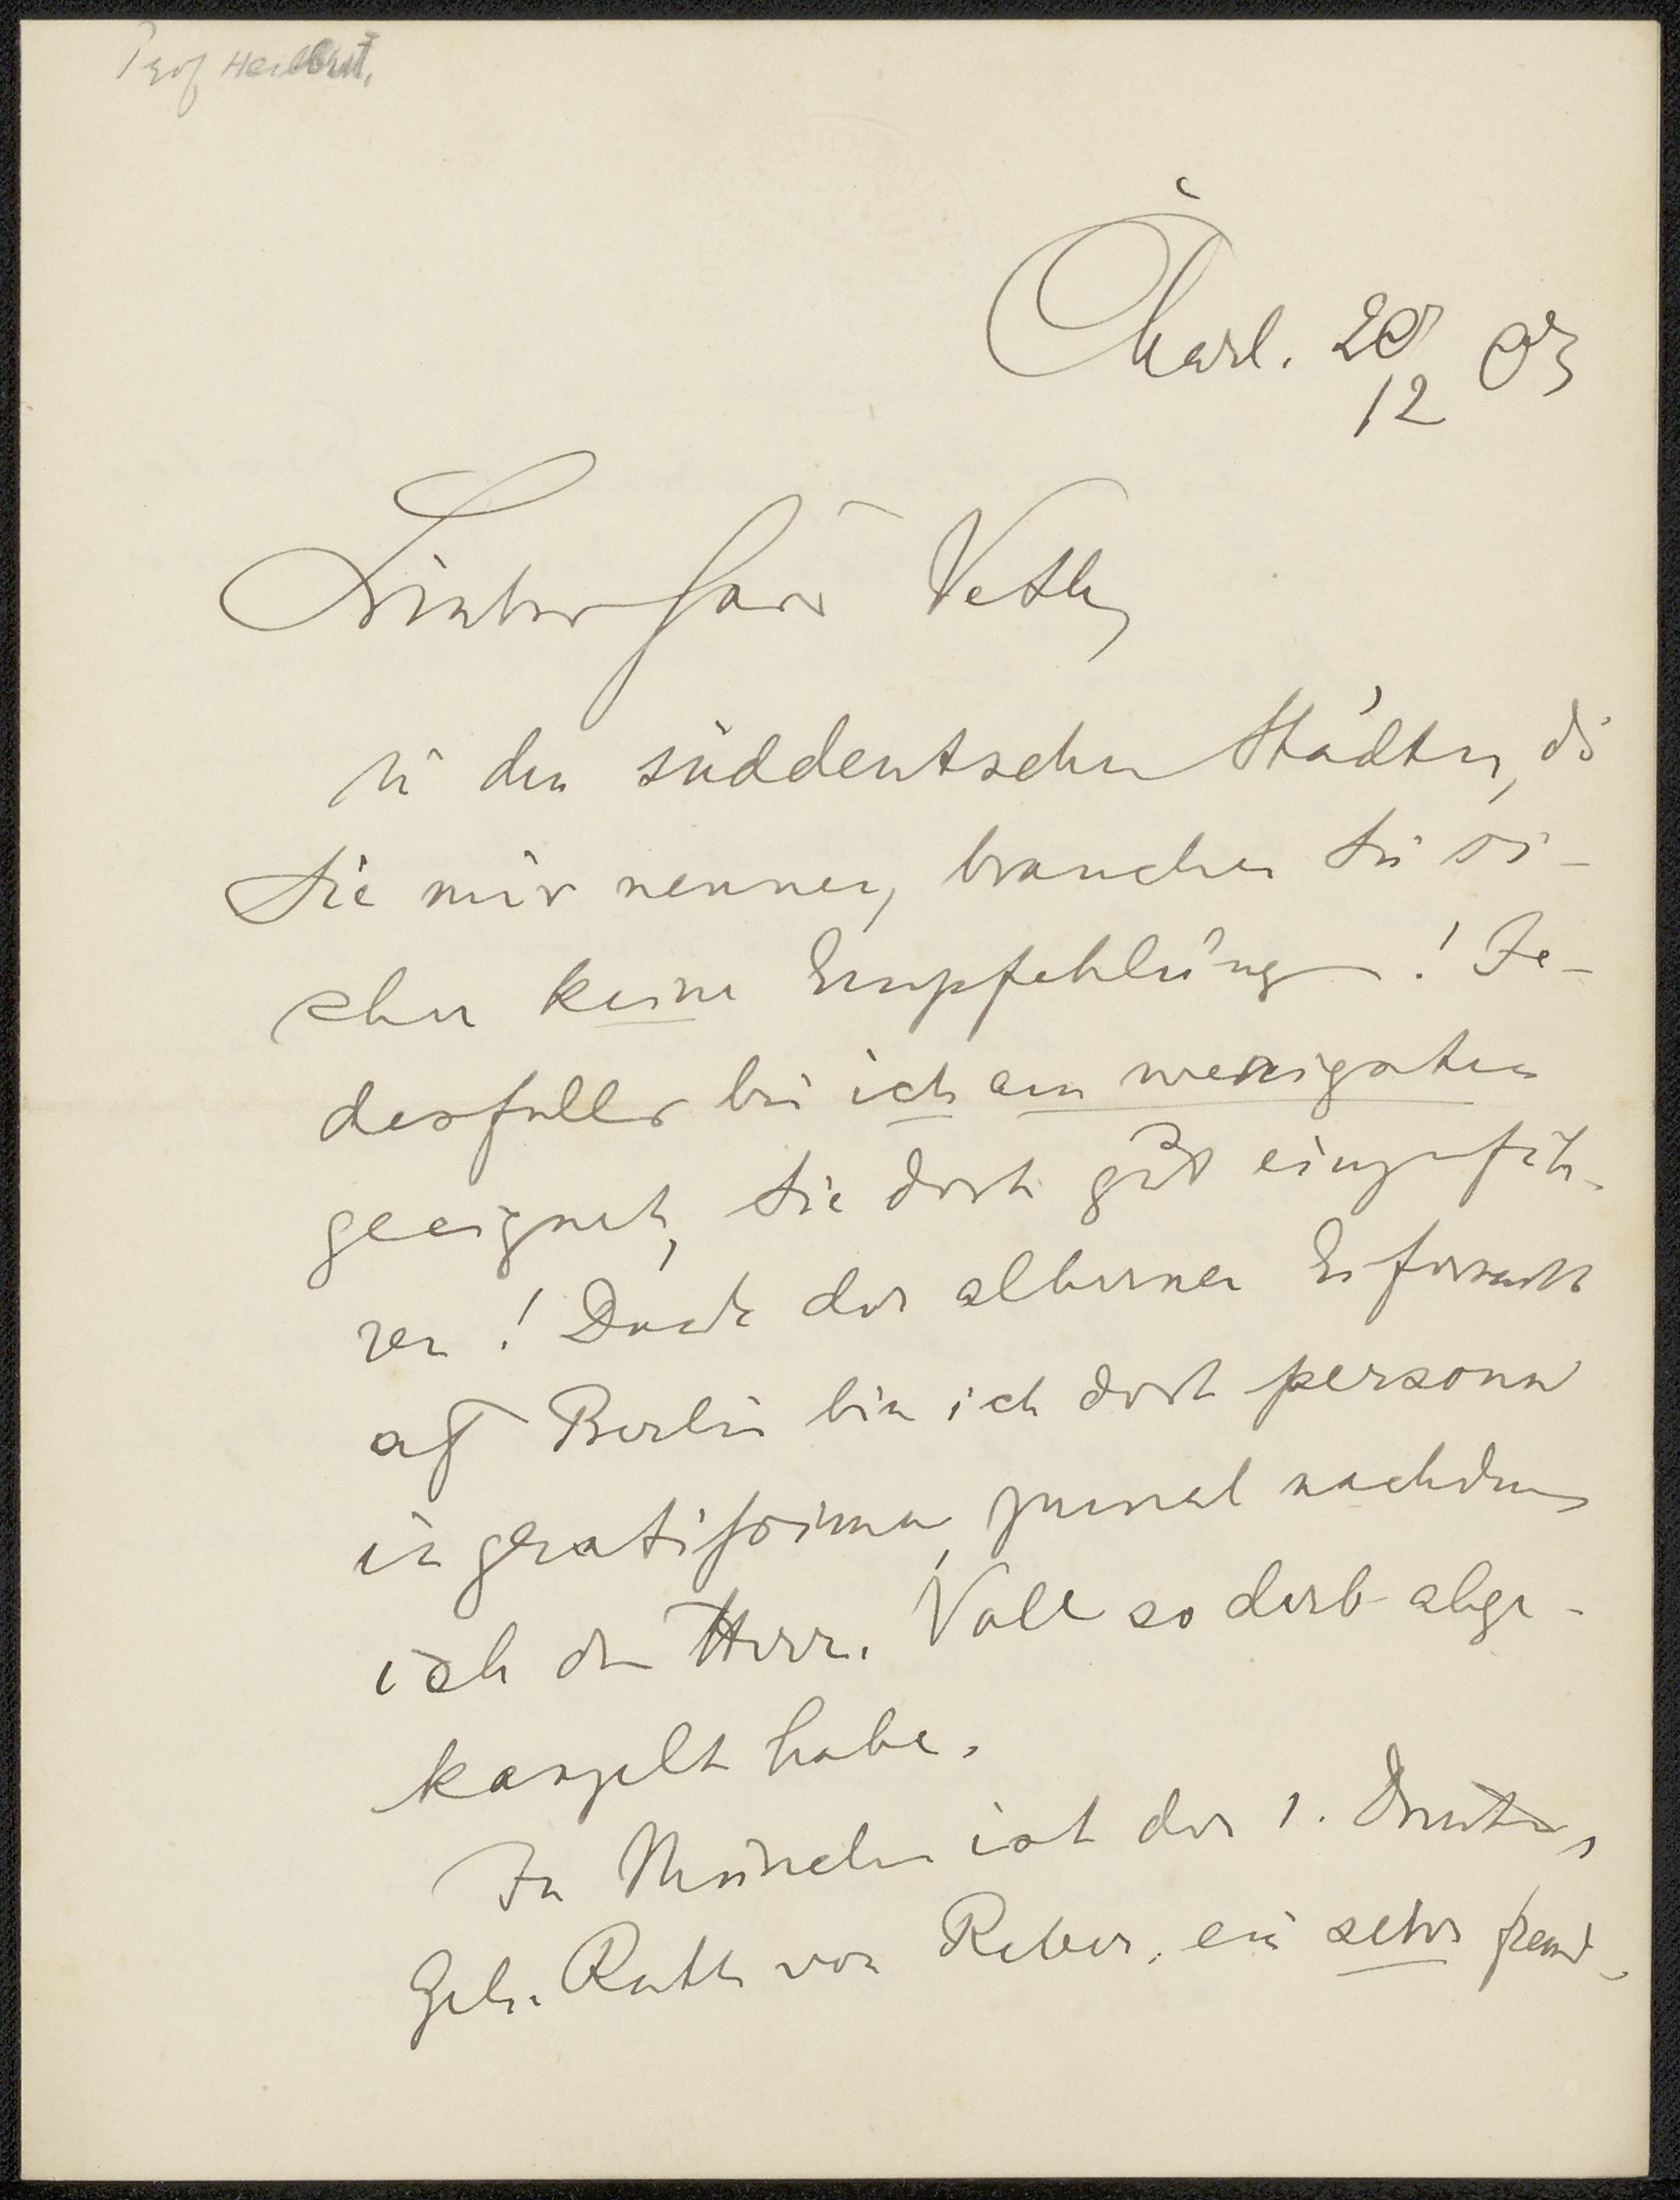 Prof Heilbut.
Charl. 20/12 03
Lieber Herr Veth,
in den süddeutschen Städten, die
Sie mir nennen, brauchen Sie si-
cher keine Empfehlungen! Je-
desfalls bin ich am wenigsten
geeignet, Sie dort gut einzufüh-
ren! Dank der albernen Eifersucht
auf Berlin bin ich dort persona
ingratissima, zumal nachdem
ich den Herrn Voll so derb abge-
kanzelt habe.
In München ist der 1. Direktor,
Geh. Rath von Reber, ein sehr freund-